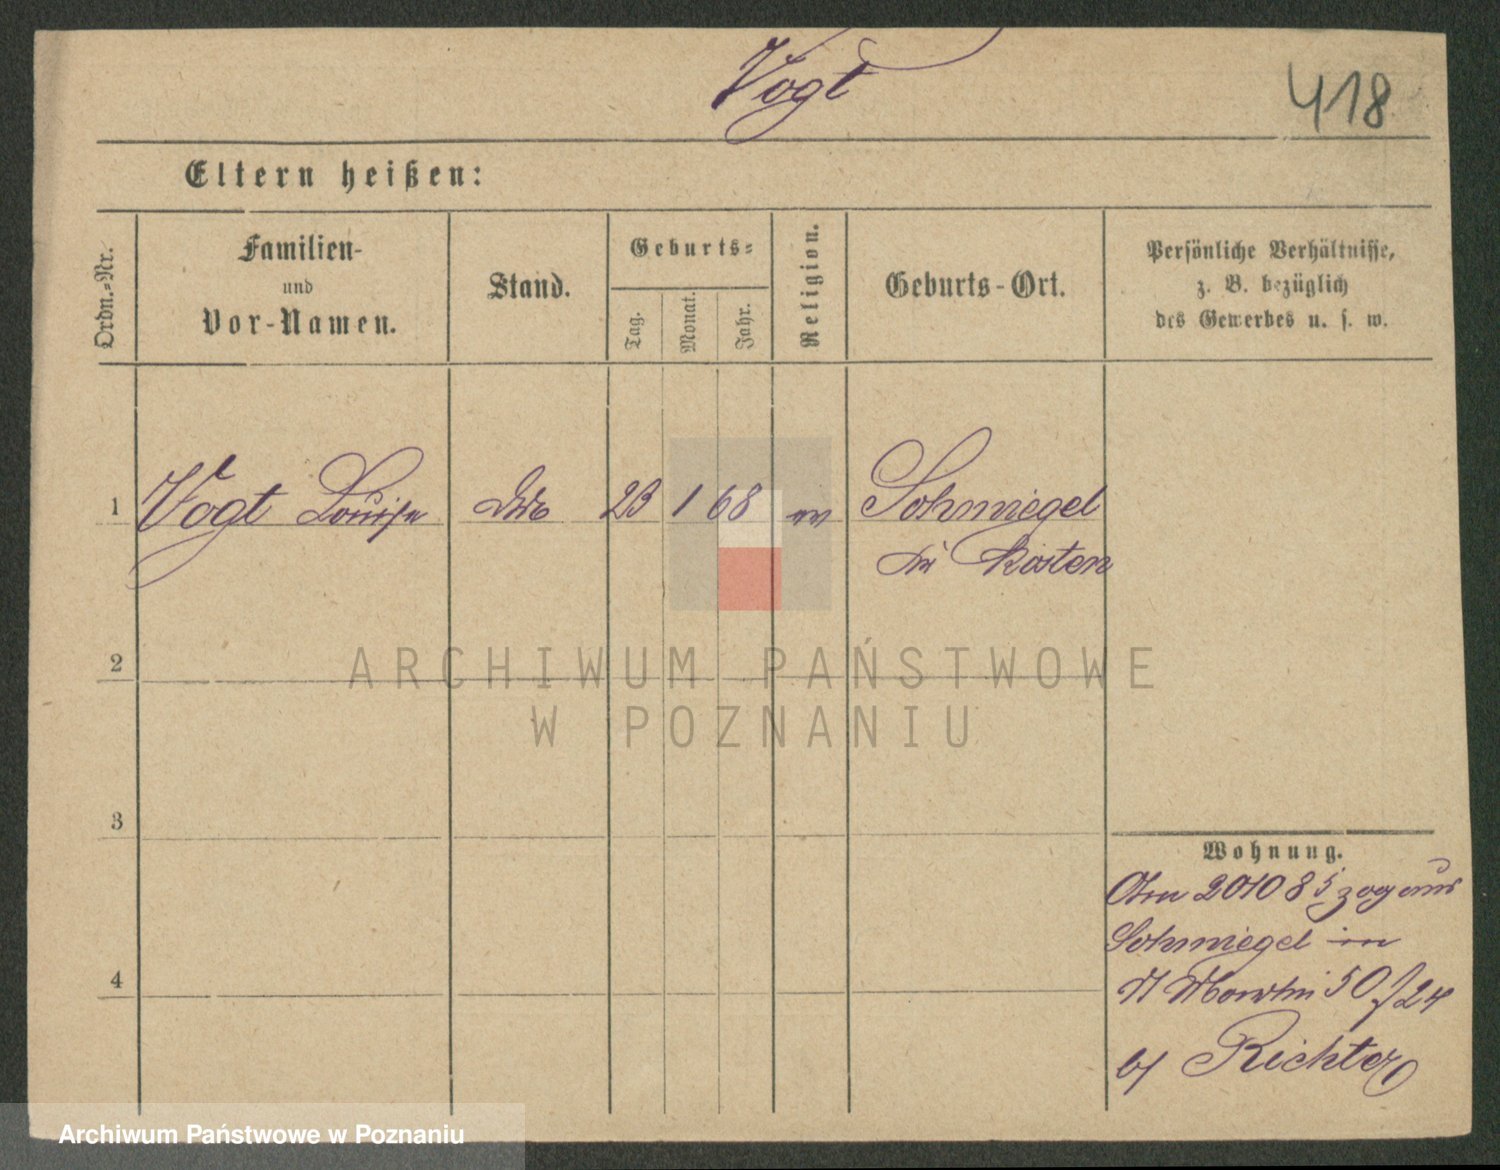 Vogt
418
Eltern heißen:
Ordn.-Nr.
Familien-
und
Vor-Namen.
Stand.
Geburts-
Tag.
Monat.
Jahr.
Religion.
Geburts-Ort.
Persönliche Verhältnisse,
z. B. bezüglich
des Gewerbes u. s. w.
1 Vogt Louise 23 1 68 Schmiegel
Kosten
2
3
4
Wohnung.
2010 85 zog aus
Schmiegel in
50 f 24
b/ Richter
ARCHIWUM PAŃSTWOWE
W POZNANIU
Archiwum Państwowe w Poznaniu